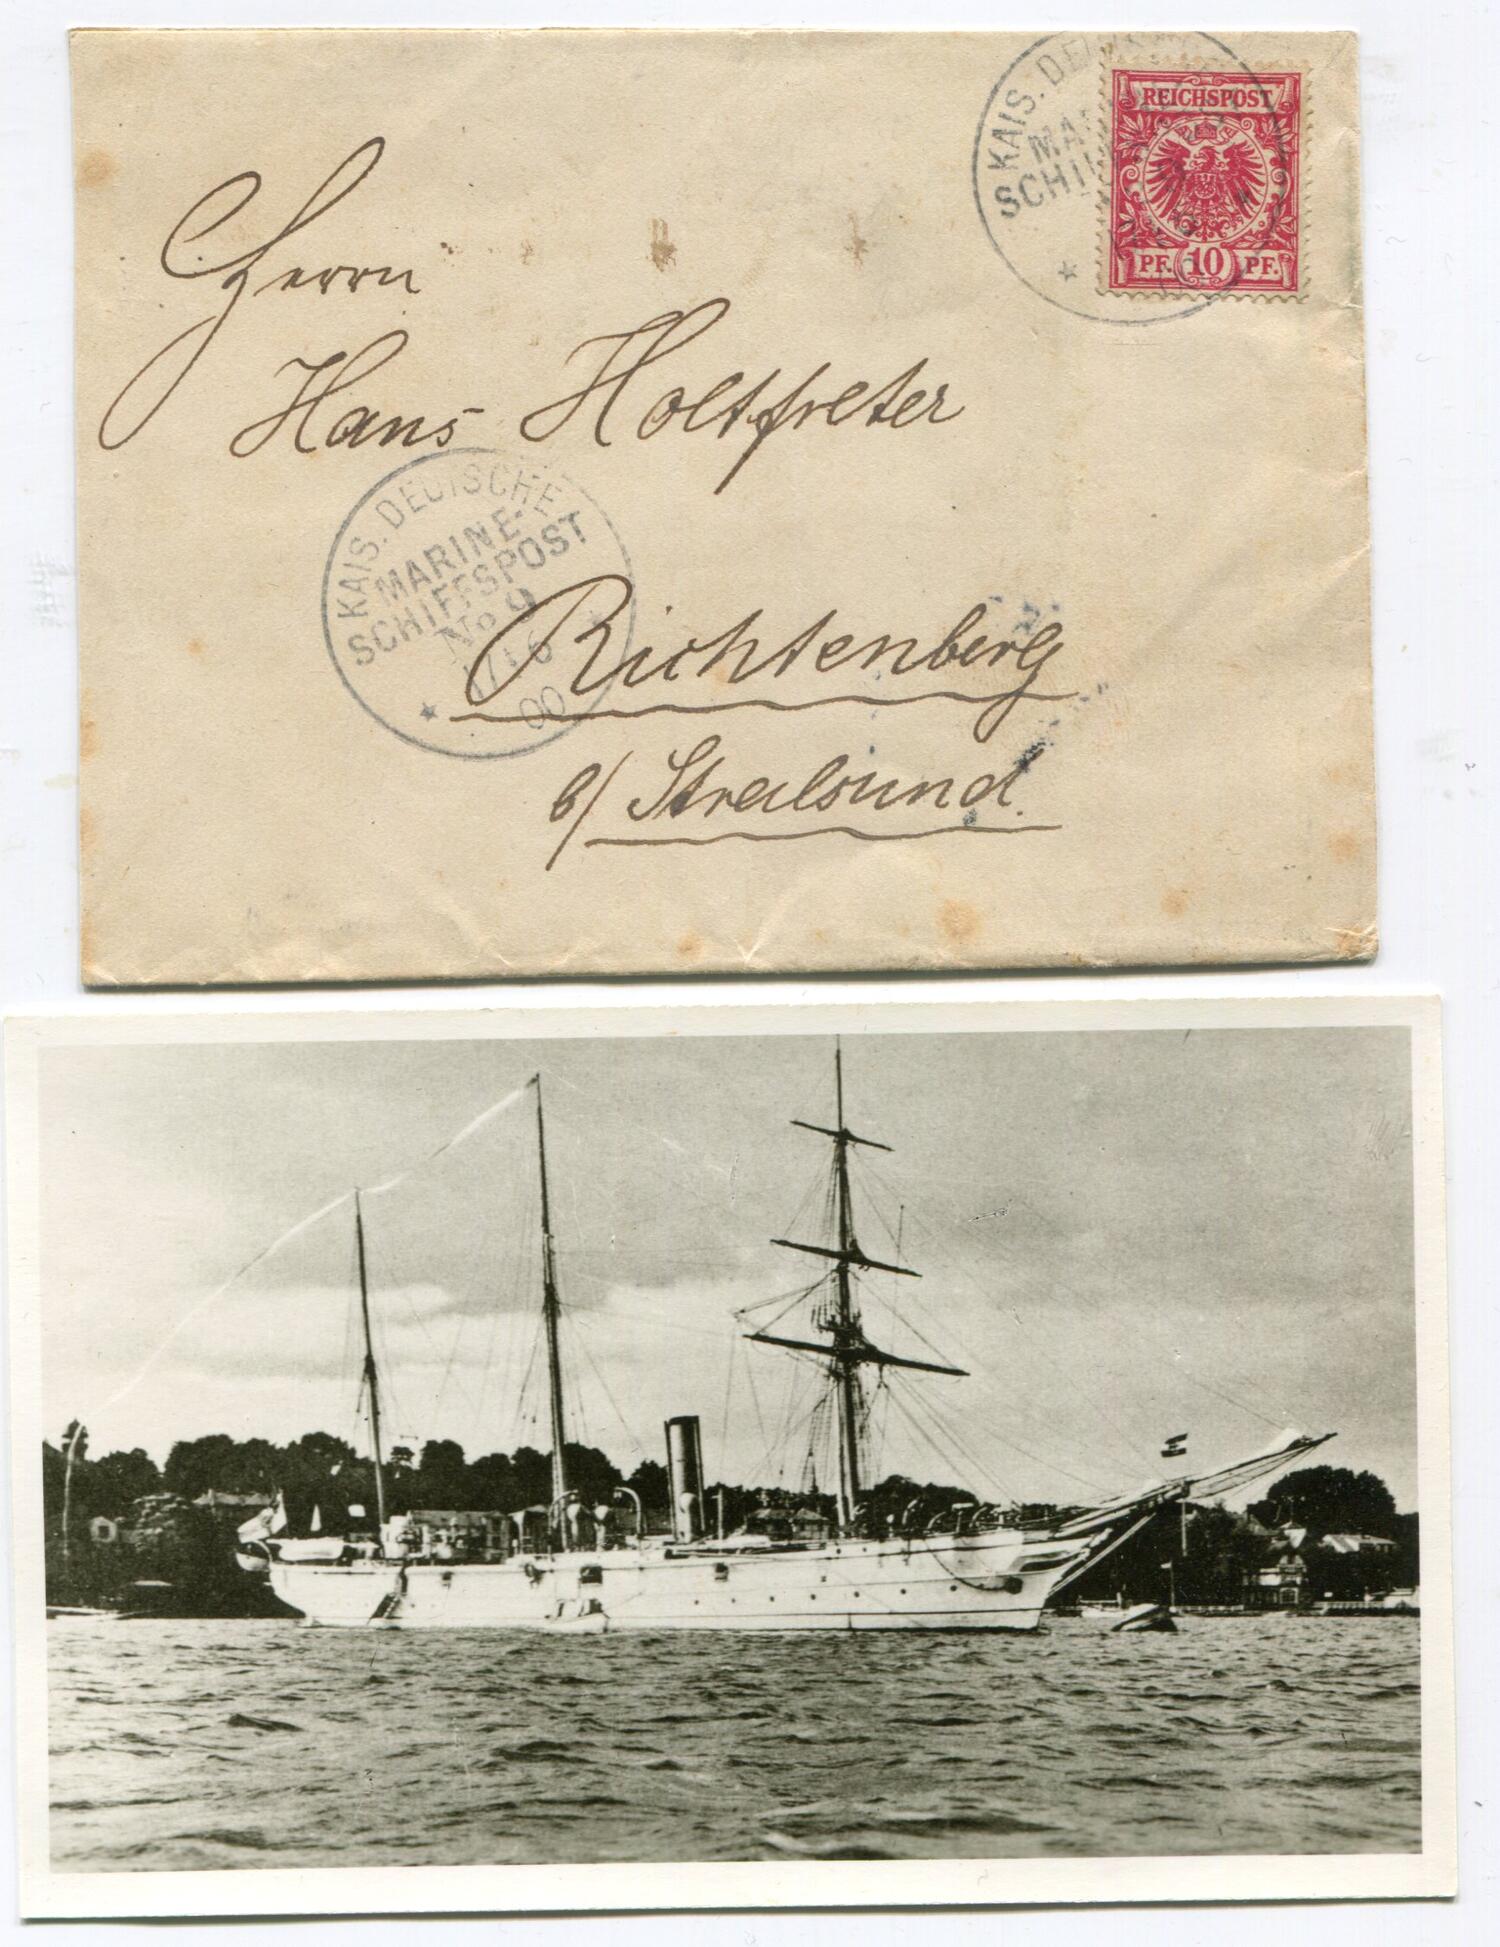 KAIS. DEU
MA
SCHI
REICHSPOST
PF. 10 PF.
Herrn
Hans Holtfreter
KAIS. DEUTSCHE
MARINE-
SCHIFFSPOST
No 9
17/6
00
Richtenberg
b/ Stralsund.